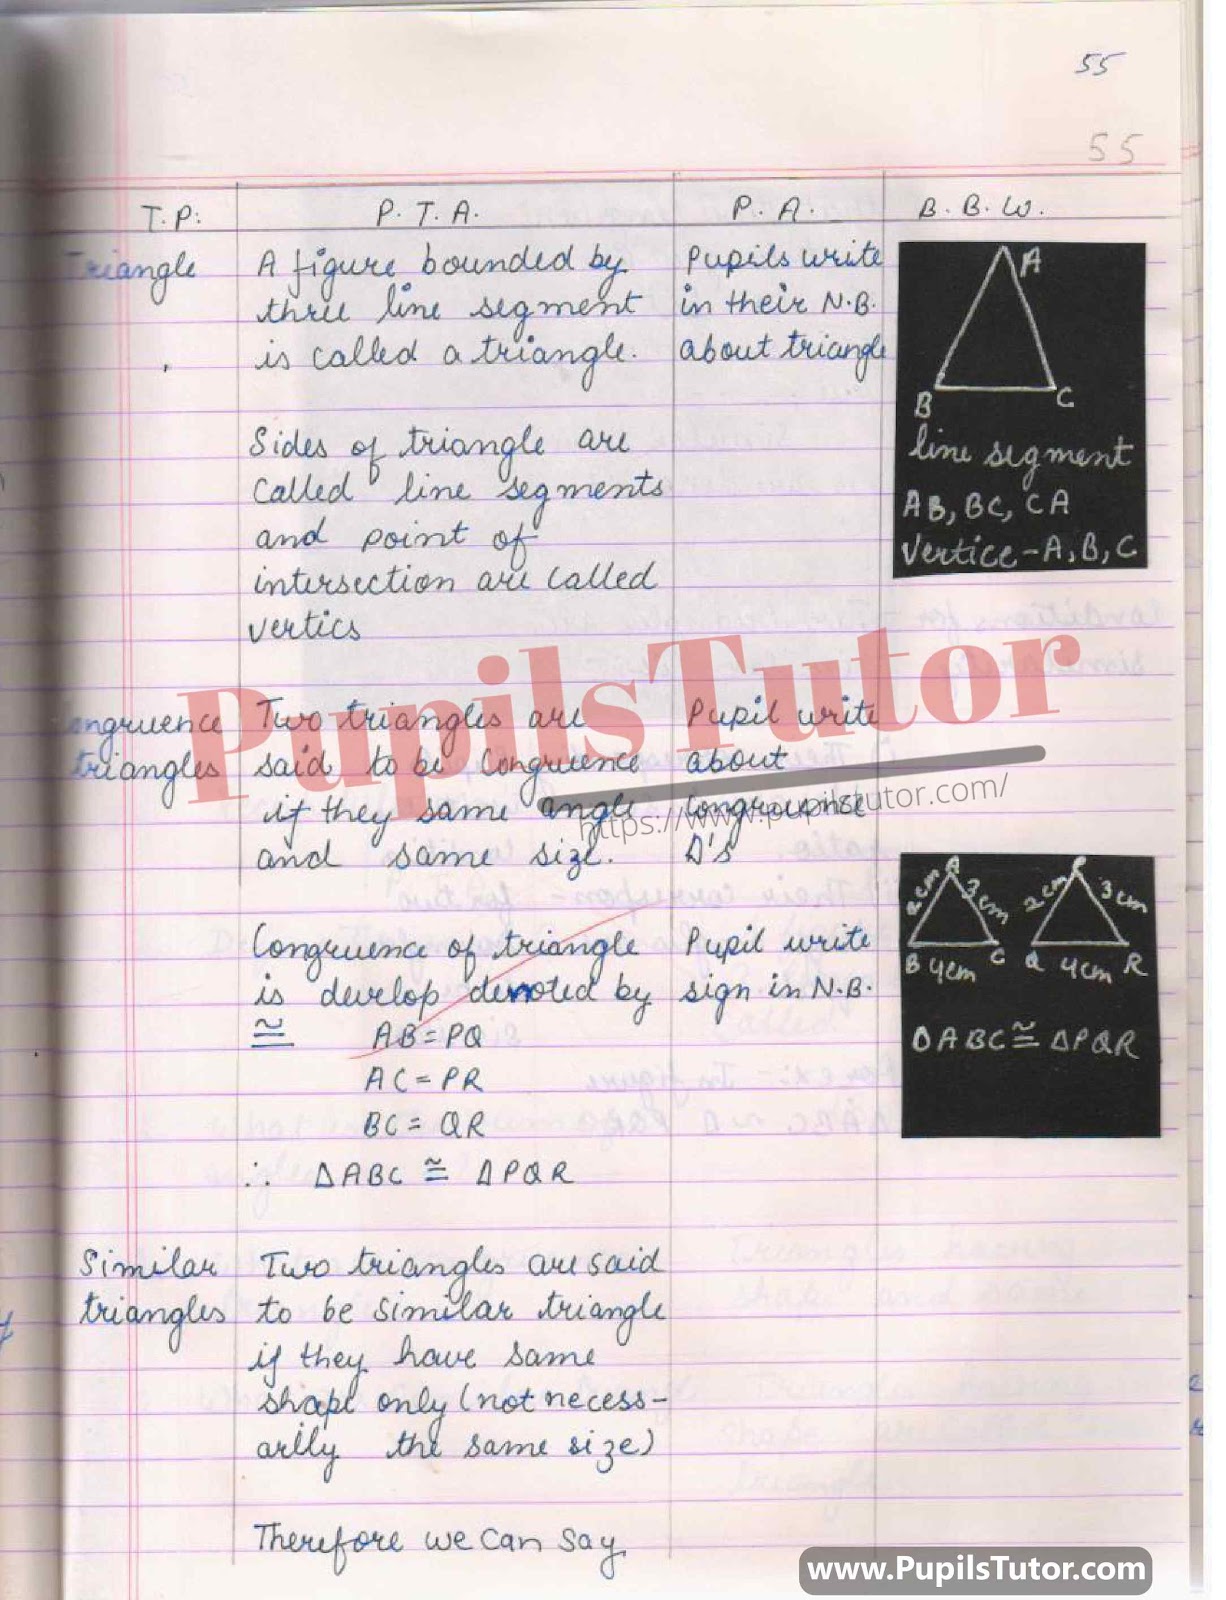 55
55
T.P:
P.T.A.
P.A.
B.B.W.
Triangle
A figure bounded by
three line segment
is called a triangle.
Pupils write
in their N.B.
about triangle
A
B
C
line segment
AB, BC, CA
Vertice - A, B, C
Sides of triangle are
called line segments
and point of
intersection are called
vertics
PupilsTutor
https://www.pupilstutor.com/
ongruence
triangles
Two triangles are
said to be Congruence
if they same angle
and same size.
Pupil write
about
Congruence
Δ's
Congruence of triangle
is develop denoted by
≅ AB = PQ
AC = PR
BC = QR
∴ ΔABC ≅ ΔPQR
Pupil write
sign in N.B.
A
2cm
3cm
B
4cm
C
P
2cm
3cm
Q
4cm
R
ΔABC ≅ ΔPQR
Similar
triangles
Two triangles are said
to be similar triangle
if they have same
shape only (not necess-
arily the same size)
Therefore we can say
www.PupilsTutor.com